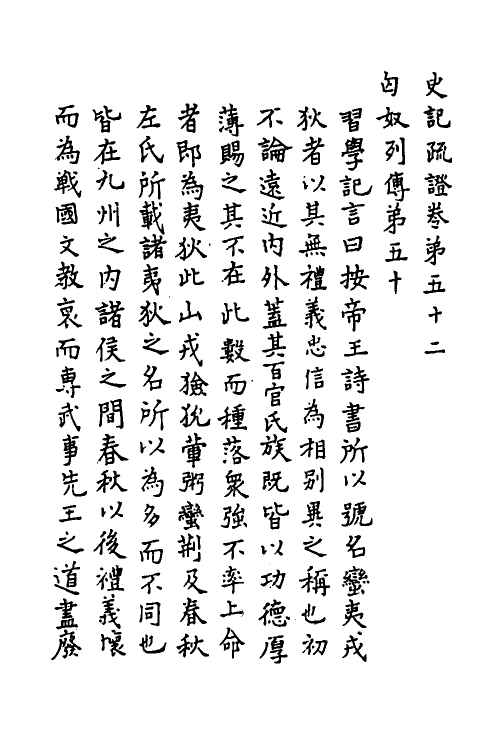 史記疏證卷第五十二
匈奴列傳第五十
習學記言曰按帝王詩書所以號名蠻夷戎
狄者以其無禮義忠信為相别異之稱也初
不論遠近内外蓋其百官氏族既皆以功德厚
薄賜之其不在此數而種落衆強不率上命
者即為夷狄此山戎獫狁葷粥蠻荆及春秋
左氏所載諸夷狄之名所以為多而不同也
皆在九州之内諸侯之間春秋以後禮義壞
而為戰國文教衰而專武事先王之道盡廢